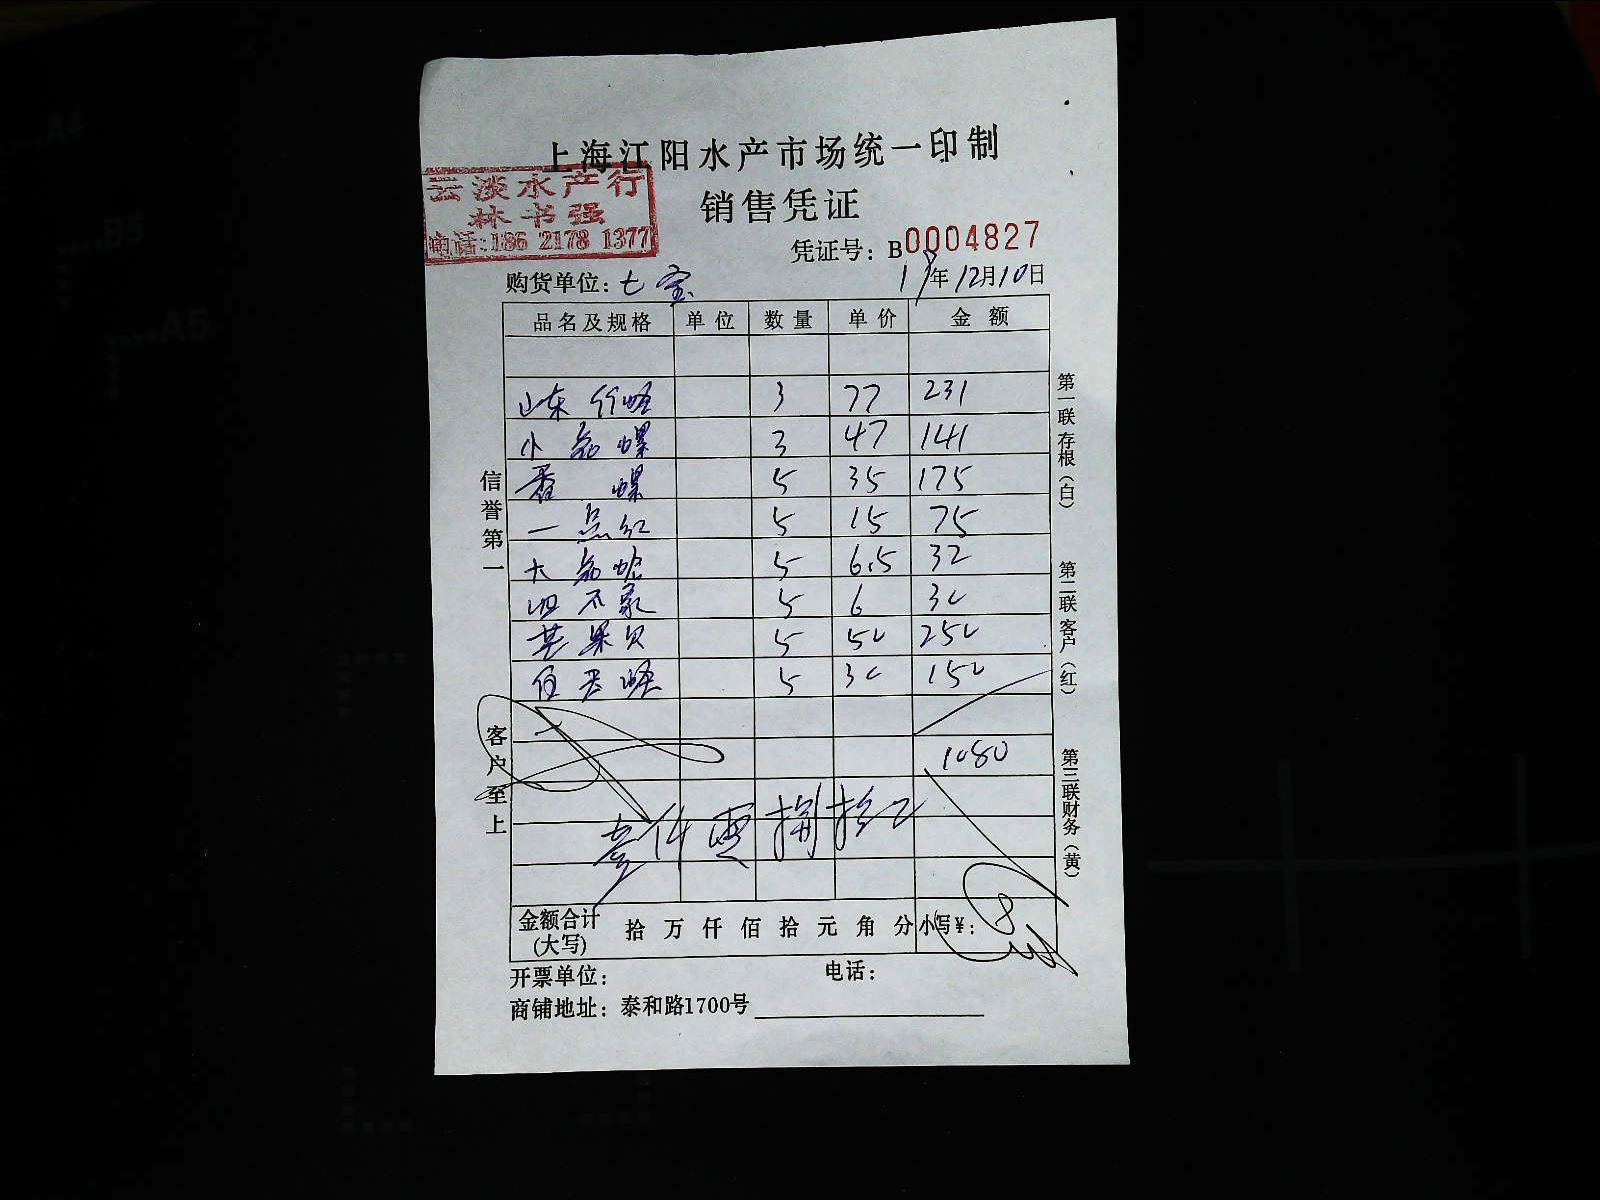 上海江阳水产市场统一印制
云淡水产行
林书强
电话:186 2178 1377
销售凭证
凭证号：B0004827
购货单位：七宝
19年12月10日
品名及规格 单位 数量 单价 金额
山东竹蛏 3 77 231
小 螺 3 47 141
香螺 5 35 175
一点红 5 15 75
大 蛤 5 6.5 32
四不象 5 6 30
苹果贝 5 50 250
蛏 5 30 150
1080
壹仟零捌拾元
金额合计(大写) 拾 万 仟 佰 拾 元 角 分 小写¥：
开票单位： 电话：
商铺地址：泰和路1700号
信誉第一
客户至上
第一联存根（白）
第二联客户（红）
第三联财务（黄）